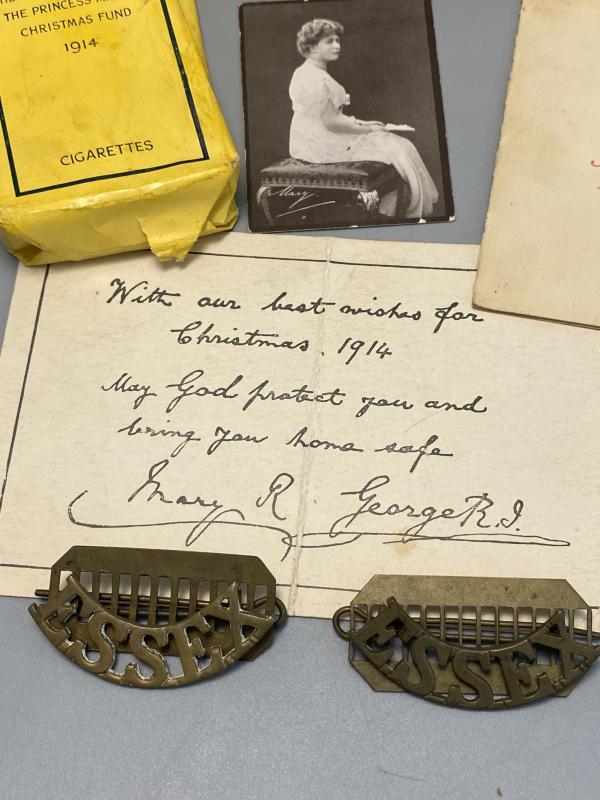 THE PRINCESS
CHRISTMAS FUND
1914
CIGARETTES
Mary.
With our best wishes for
Christmas. 1914
May God protect you and
bring you home safe
Mary R George R.I.
ESSEX
ESSEX